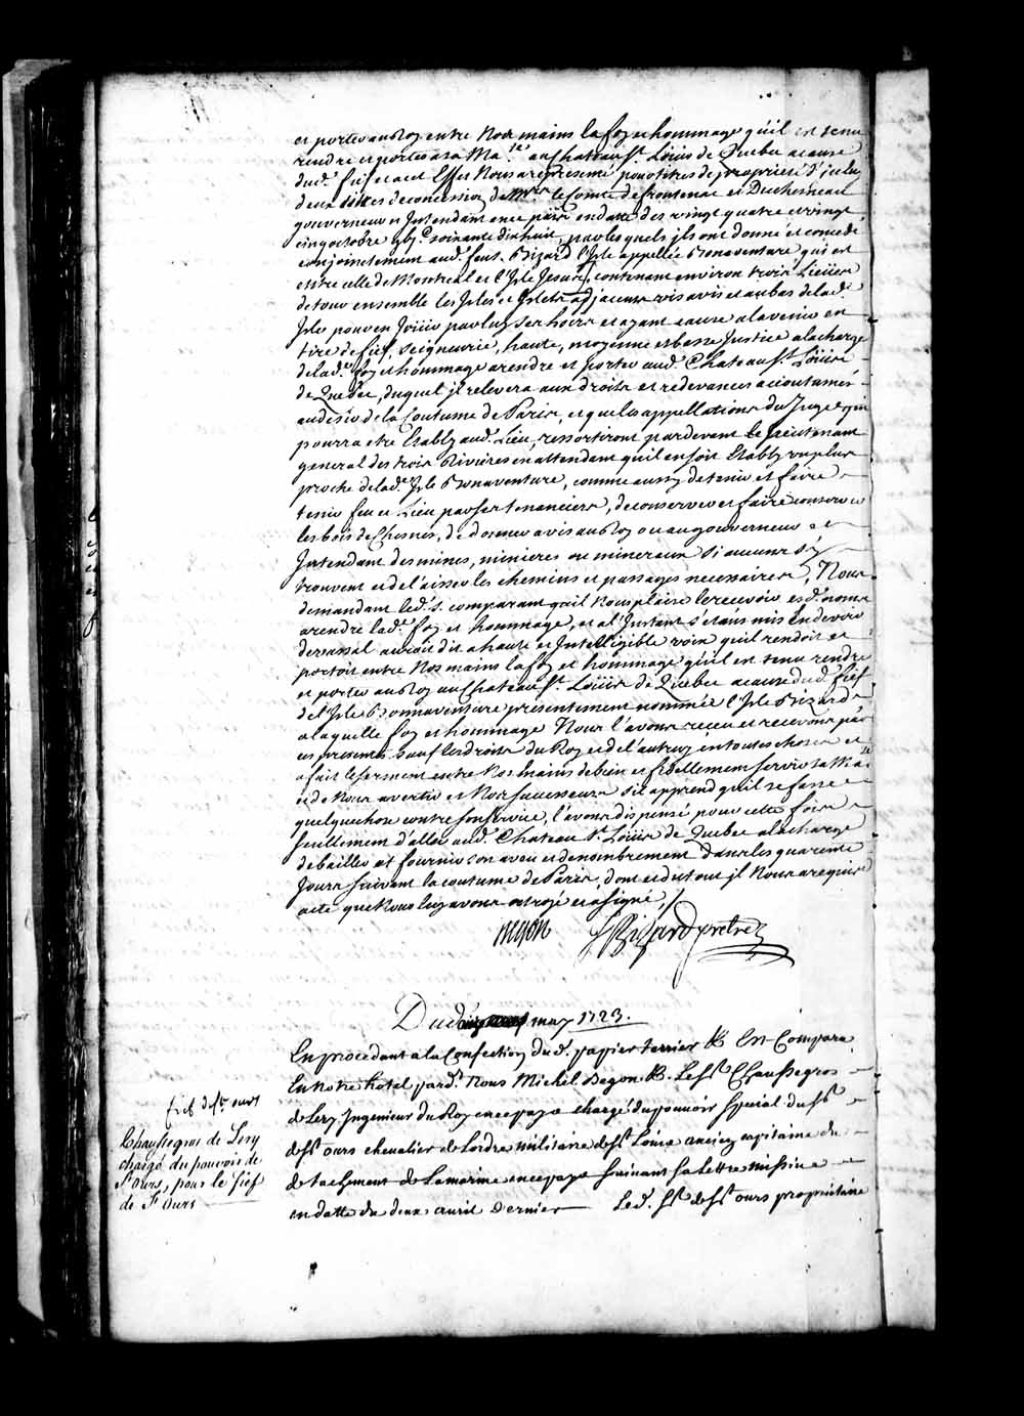 et porter au Roy entre Nos mains la foy et hommage qu'il est tenu
rendre et porter a sa Ma.té au Chateau St. Loüis de Quebec a cause
dud. fief et a cet Effet Nous a representé pour titres de proprieté d'iceluy
deux titres de concession de Mrs. le Comte de frontenac et Duchesneau
gouverneur et Intendant en ce païs en datte des vingt quatre et vingt
cinq octobre soixante dix huit, par lesquels ils ont donné et concedé
conjointement aud. feu s. Bizard l'Isle appellée Bonaventure qui est
entre celle de Montreal et l'Isle Jesus, contenant environ trois Lieües
de tour ensemble les Isles et Islets adjacents vis avis et au bas de lad.
Isle pour en Joüir par luy Ses hoirs et ayant cause a l'avenir en
tire de fief, Seigneurie, haute, moyenne et basse Justice a la charge
de lad.e foy et hommage a rendre et porter aud. Chateau St. Loüis
de Quebec, duquel il relevera aux droits et redevances accoutumés
au desir de la Coutume de Paris, et que les appellations du Juge qui
pourra etre Etably aud. Lieu, ressortiront pardevant le Lieutenant
general des trois Rivieres en attendant qu'il en soit Etably un plus
proche de lad.e Isle Bonaventure, comme aussy de tenir et faire
tenir feu et Lieu par ses tenanciers, de conserver et faire conserver
les bois de Chesnes, de donner avis au Roy ou au gouverneur et
Intendant des mines, minieres ou mineraux si aucuns s'y
trouvent et de l'aisser les chemins et passages necessaires, Nous
demandant led. s. comparant qu'il Nous plaise le recevoir esd. noms
a rendre lad.e foy et hommage, et al'Instant s'etant mis En devoir
de vassal auroit dit a haute et Intelligible voix qu'il rendoit et
portoit entre Nos mains la foy et hommage qu'il est tenu rendre
et porter au Roy au Chateau St. Loüis de Quebec a cause dud. fief
de l'Isle Bonnaventure presentement nommée l'Isle Bizard
a laquelle foy et hommage Nous l'avons receu et recevons par
ces presentes Sauf les droits du Roy et de l'autruy en toutes choses et
a fait le serment entre Nos Mains de bien et fidellement servir Sa Ma.té
et de Nous avertir et Nos successeurs s'il apprend qu'il se fasse
quelque chose contre Son Service, l'avons dispensé pour cette fois
seullement d'aller aud. Chateau St. Loüis de Quebec a la charge
de bailler et fournir son aveu et denombrement dans les quarante
Jours suivant la coutume de Paris, dont et du tout il Nous a requis
acte que Nous luy avons octroyé et a signé,
Begon Bizard pretre
Du may 1723.
En procedant a la Confection dud. papier terrier &c. Est Comparu
En Notre hotel pard.t Nous Michel Begon &c. Le Sr. Chaussegros
de Lery Ingenieur du Roy en ce pays chargé du pouvoir special du Sr.
de St. ours chevalier de Lordre militaire de St. Loüis ancien capitaine du
detachement de Lamarine en ce pays Suivant Sa Lettre missive
en datte du deux avril dernier Led. Sr. de St. ours proprietaire
fief de St. ours
Chaussegros de Lery
chargé du pouvoir de
St Ours, pour le fief
de St Ours